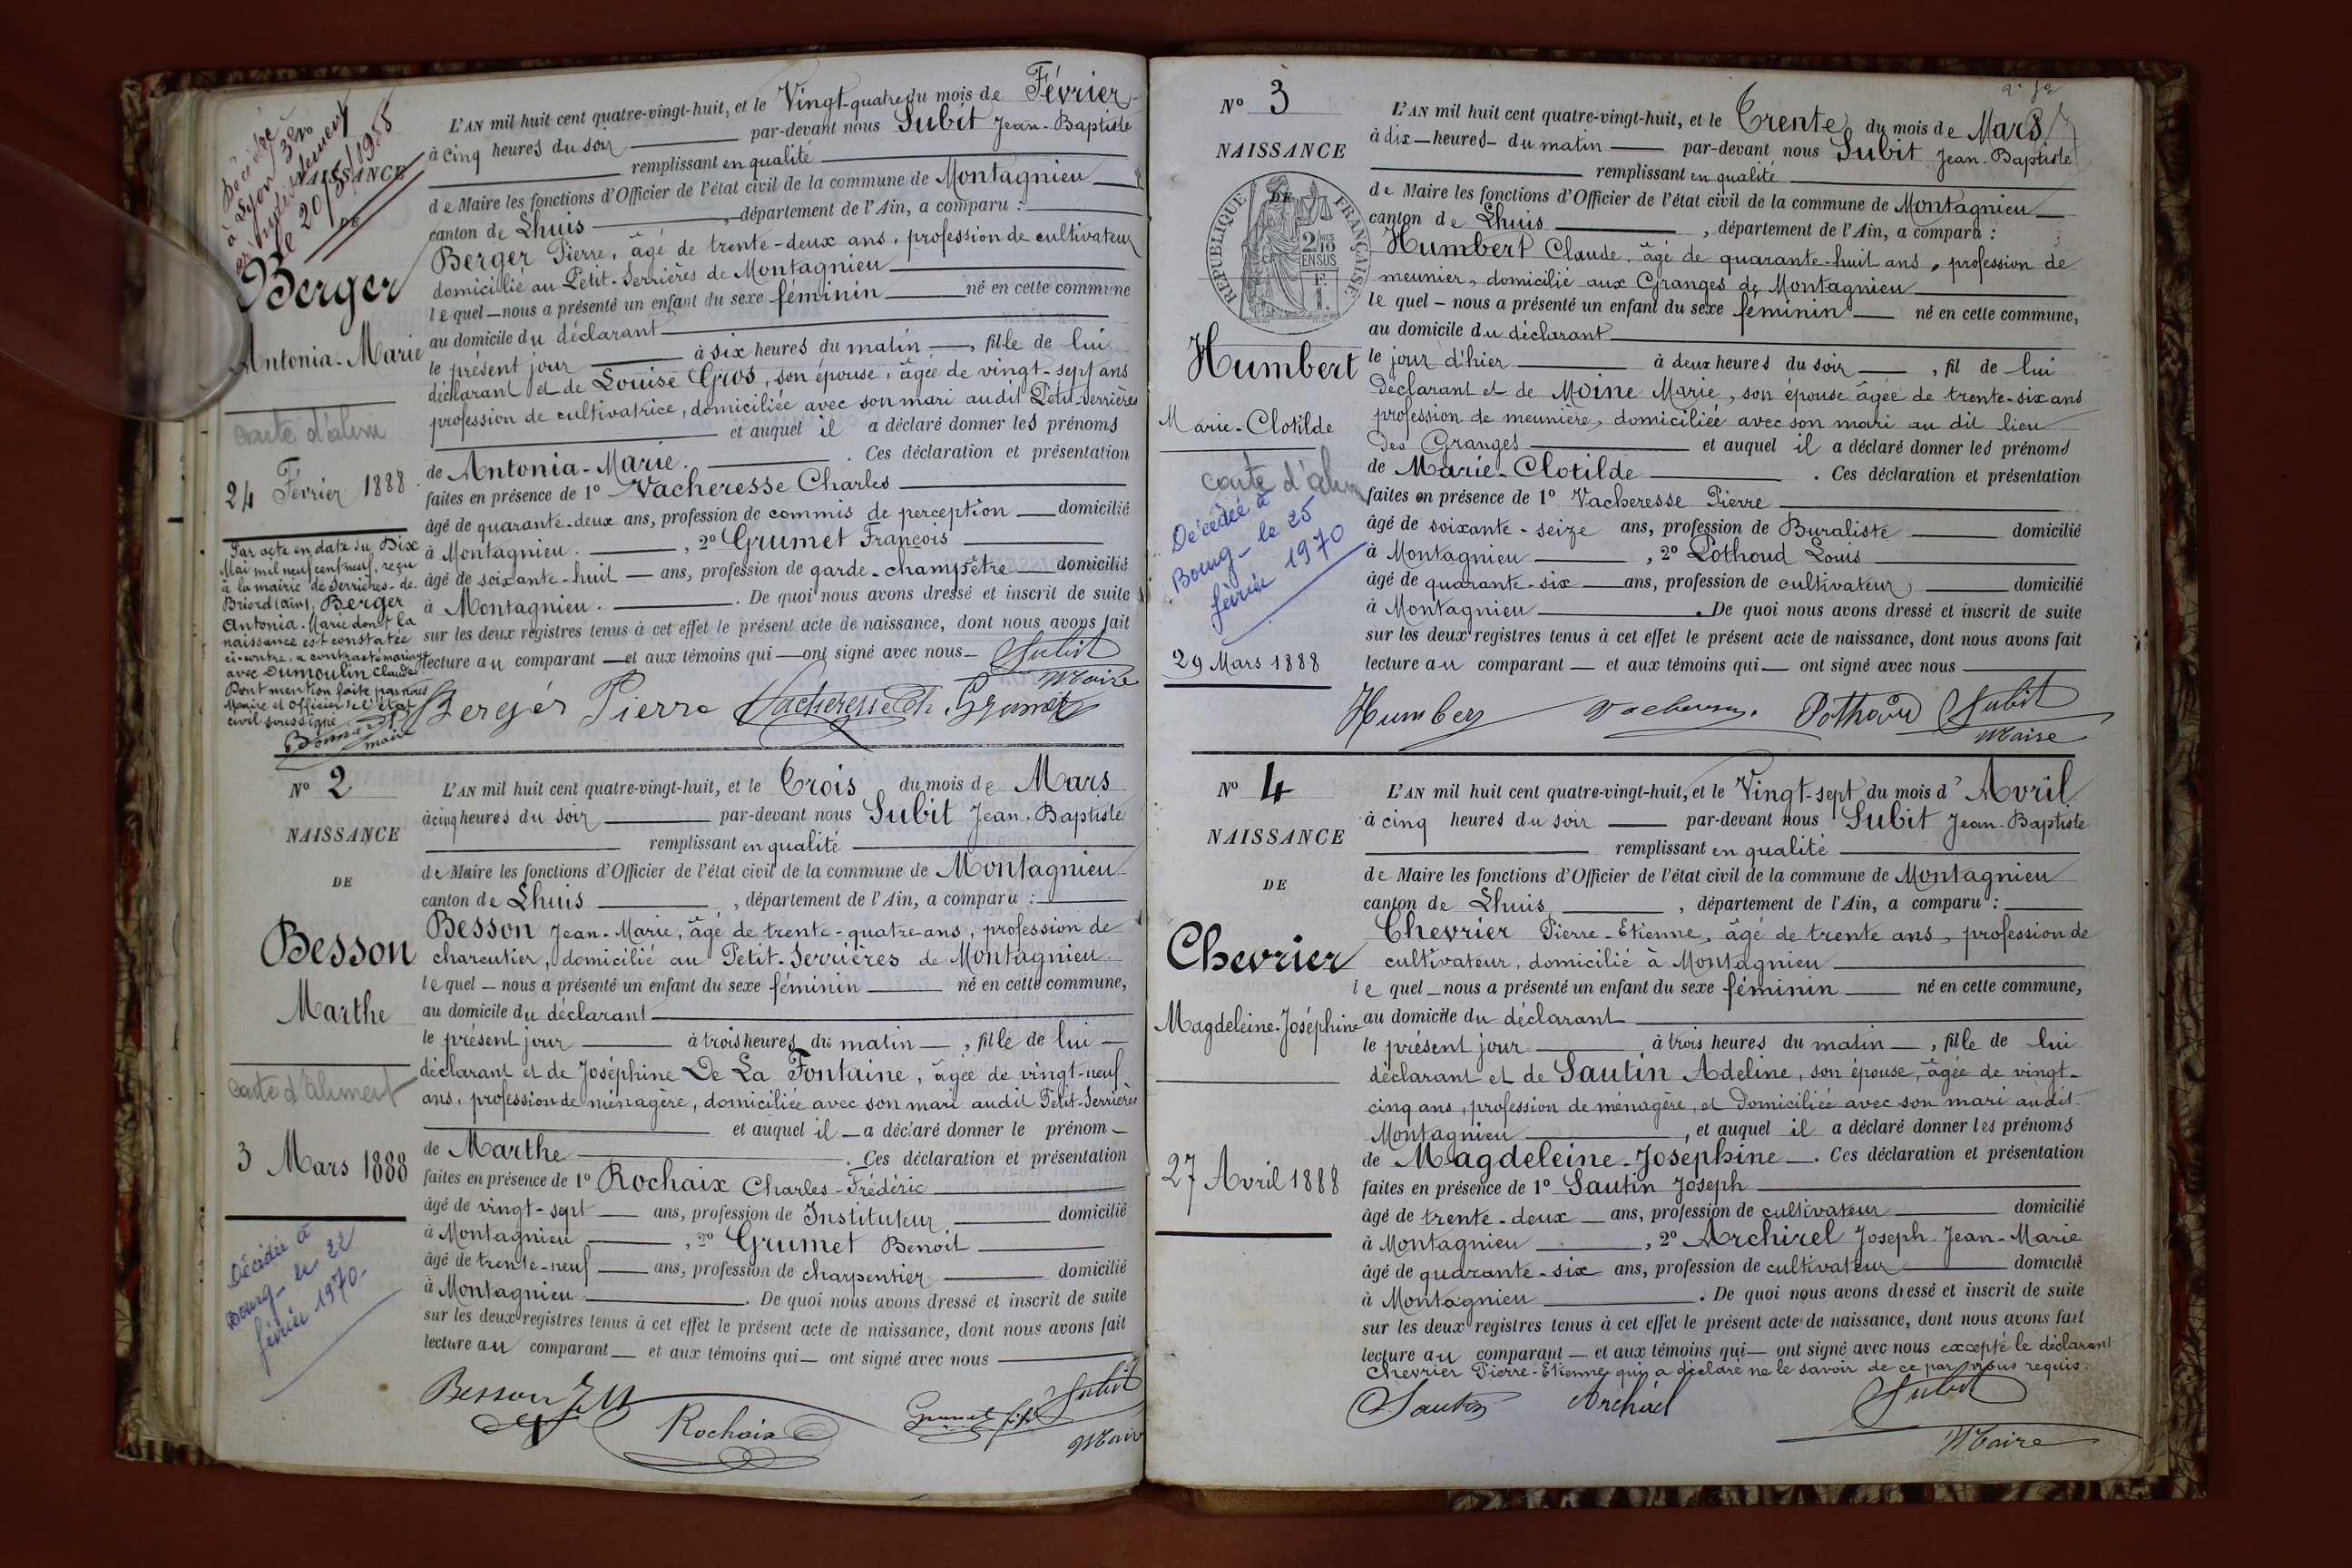 Décédée
à Lyon 3me
arrondissement
le 20/5/1955
NAISSANCE
DE
Berger
Antonia-Marie
carte d'alim
24 Février 1888
Par acte en date du Dix
Mai mil neuf cent neuf, reçu
à la mairie de Serrières-de-
Briord (Ain), Berger
Antonia-Marie dont la
naissance est constatée
ci-contre, a contracté mariage
avec Dumoulin Claude
Dont mention faite par nous
Maire et Officier de l'état
civil soussigné
maire
L'AN mil huit cent quatre-vingt-huit, et le Vingt-quatre du mois de Février
à cinq heures du soir par-devant nous Subit Jean-Baptiste
remplissant en qualité
de Maire les fonctions d'Officier de l'état civil de la commune de Montagnieu
canton de Lhuis, département de l'Ain, a comparu :
Berger Pierre, âgé de trente-deux ans, profession de cultivateur
domicilié au Petit-Serrières de Montagnieu
lequel nous a présenté un enfant du sexe féminin né en cette commune
au domicile du déclarant
le présent jour à six heures du matin, fille de lui
déclarant et de Louise Gros, son épouse, âgée de vingt-sept ans
profession de cultivatrice, domiciliée avec son mari audit Petit-Serrières
et auquel il a déclaré donner les prénoms
de Antonia-Marie. Ces déclaration et présentation
faites en présence de 1º Vacheresse Charles
âgé de quarante-deux ans, profession de commis de perception domicilié
à Montagnieu, 2º Grumet François
âgé de soixante-huit ans, profession de garde-champêtre domicilié
à Montagnieu. De quoi nous avons dressé et inscrit de suite
sur les deux registres tenus à cet effet le présent acte de naissance, dont nous avons fait
lecture au comparant et aux témoins qui ont signé avec nous Subit
Maire
Berger Pierre Vacheresse Ch. Grumet
Nº 2
NAISSANCE
DE
Besson
Marthe
carte d'aliment
3 Mars 1888
Décédée à
Bourg - le 22
février 1970.
L'AN mil huit cent quatre-vingt-huit, et le Trois du mois de Mars
à cinq heures du soir par-devant nous Subit Jean-Baptiste
remplissant en qualité
de Maire les fonctions d'Officier de l'état civil de la commune de Montagnieu
canton de Lhuis, département de l'Ain, a comparu :
Besson Jean-Marie, âgé de trente-quatre ans, profession de
charcutier, domicilié au Petit-Serrières de Montagnieu
lequel nous a présenté un enfant du sexe féminin né en cette commune,
au domicile du déclarant
le présent jour à trois heures du matin, fille de lui
déclarant et de Joséphine De La Fontaine, âgée de vingt-neuf
ans, profession de ménagère, domiciliée avec son mari audit Petit-Serrières
et auquel il a déclaré donner le prénom
de Marthe. Ces déclaration et présentation
faites en présence de 1º Rochaix Charles-Frédéric
âgé de vingt-sept ans, profession de Instituteur domicilié
à Montagnieu, 2º Grumet Benoit
âgé de trente-neuf ans, profession de charpentier domicilié
à Montagnieu. De quoi nous avons dressé et inscrit de suite
sur les deux registres tenus à cet effet le présent acte de naissance, dont nous avons fait
lecture au comparant et aux témoins qui ont signé avec nous
Besson JM Rochaix Grumet fils Subit
Maire
Nº 3
NAISSANCE
DE
RÉPUBLIQUE FRANÇAISE
2/10MES
EN SUS
1 F.
Humbert
Marie-Clotilde
carte d'alim
Décédée à
Bourg - le 25
février 1970
29 Mars 1888
L'AN mil huit cent quatre-vingt-huit, et le Trente du mois de Mars
à dix heures du matin par-devant nous Subit Jean-Baptiste
remplissant en qualité
de Maire les fonctions d'Officier de l'état civil de la commune de Montagnieu
canton de Lhuis, département de l'Ain, a comparu :
Humbert Claude, âgé de quarante-huit ans, profession de
meunier, domicilié aux Granges de Montagnieu
lequel nous a présenté un enfant du sexe féminin né en cette commune,
au domicile du déclarant
le jour d'hier à deux heures du soir, fil de lui
déclarant et de Moine Marie, son épouse âgée de trente-six ans
profession de meunière, domiciliée avec son mari au dit lieu
des Granges et auquel il a déclaré donner les prénoms
de Marie-Clotilde. Ces déclaration et présentation
faites en présence de 1º Vacheresse Pierre
âgé de soixante-seize ans, profession de Buraliste domicilié
à Montagnieu, 2º Pothoud Louis
âgé de quarante-six ans, profession de cultivateur domicilié
à Montagnieu. De quoi nous avons dressé et inscrit de suite
sur les deux registres tenus à cet effet le présent acte de naissance, dont nous avons fait
lecture au comparant et aux témoins qui ont signé avec nous
Humbert Pothoud Subit
Maire
Nº 4
NAISSANCE
DE
Chevrier
Magdeleine-Joséphine
27 Avril 1888
L'AN mil huit cent quatre-vingt-huit, et le Vingt-sept du mois d'Avril
à cinq heures du soir par-devant nous Subit Jean-Baptiste
remplissant en qualité
de Maire les fonctions d'Officier de l'état civil de la commune de Montagnieu
canton de Lhuis, département de l'Ain, a comparu :
Chevrier Pierre-Etienne, âgé de trente ans, profession de
cultivateur, domicilié à Montagnieu
lequel nous a présenté un enfant du sexe féminin né en cette commune,
au domicile du déclarant
le présent jour à trois heures du matin, fille de lui
déclarant et de Sautin Adeline, son épouse, âgée de vingt-
cinq ans, profession de ménagère, et Domiciliée avec son mari audit
Montagnieu, et auquel il a déclaré donner les prénoms
de Magdeleine-Josephine. Ces déclaration et présentation
faites en présence de 1º Sautin Joseph
âgé de trente-deux ans, profession de cultivateur domicilié
à Montagnieu, 2º Archirel Joseph-Jean-Marie
âgé de quarante-six ans, profession de cultivateur domicilié
à Montagnieu. De quoi nous avons dressé et inscrit de suite
sur les deux registres tenus à cet effet le présent acte de naissance, dont nous avons fait
lecture au comparant et aux témoins qui ont signé avec nous excepté le déclarant
Chevrier Pierre-Etienne qui a déclaré ne le savoir de ce par nous requis.
Sautin Archirel Subit
Maire